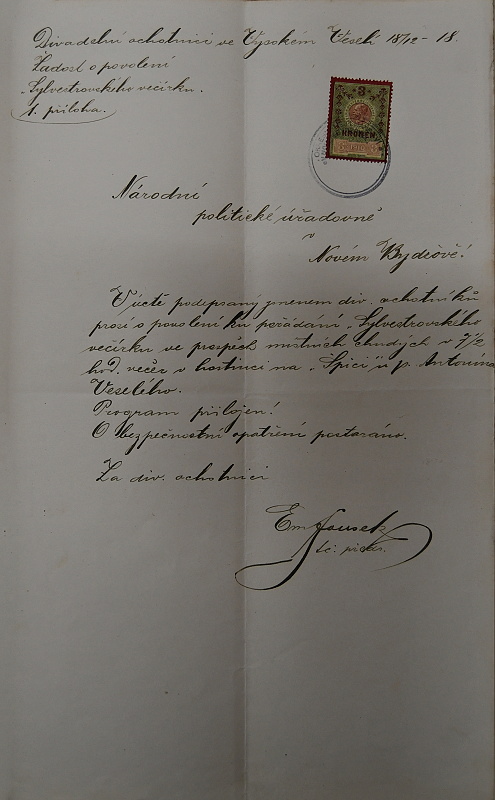 Divadelní ochotníci ve Vysokém Veselí 18/12 - 18.
Žádost o povolení
„Sylvestrovského večírku.
1. příloha.
3
KRONEN
Národní
politické úřadovně
v
Novém Bydžově!
V úctě podepsaný jmenem div. ochotníků
prosí o povolení ku pořádání „Sylvestrovského
večírku ve prospěch místních chudých v 7/2
hod. večer v hostinci na „Špici" u p. Antonína
Veselého.
Program přiložen!
O bezpečnostní opatření postaráno.
Za div. ochotníci
Em. Housek